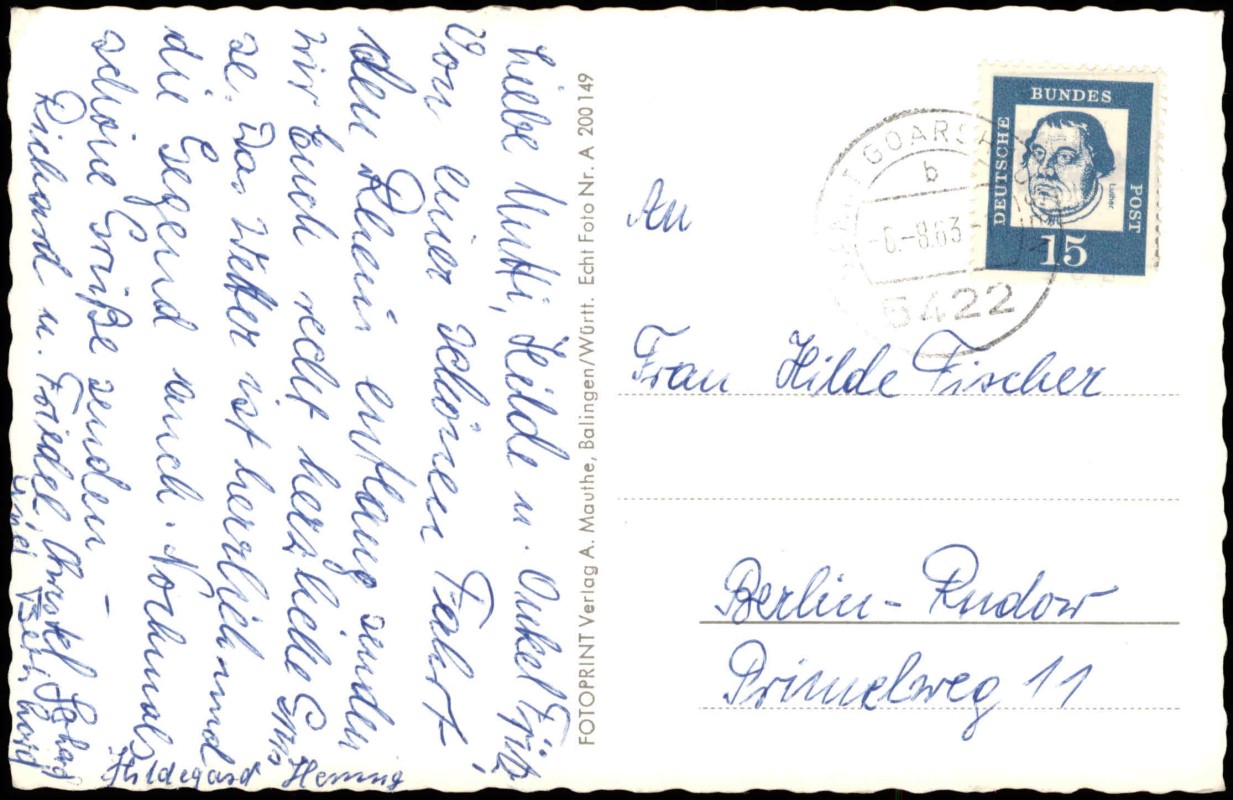 Liebe Mutti, Hilde u. Onkel Fritz,
Von einer schönen Fahrt
den Rhein entlang senden
wir Euch recht herzliche Grü-
se. Das Wetter ist herrlich und
die Gegend auch. Nochmals
schöne Grüße senden –
Richard u. Friedel, Christel
Hildegard Henning
FOTOPRINT Verlag A. Mauthe, Balingen/Württ. Echt Foto Nr. A 200 149
DEUTSCHE
BUNDES
POST
Luther
15
GOARSH
b
-6.-8.63-
5422
An
Frau Hilde Fischer
Berlin-Rudow
Primelweg 11